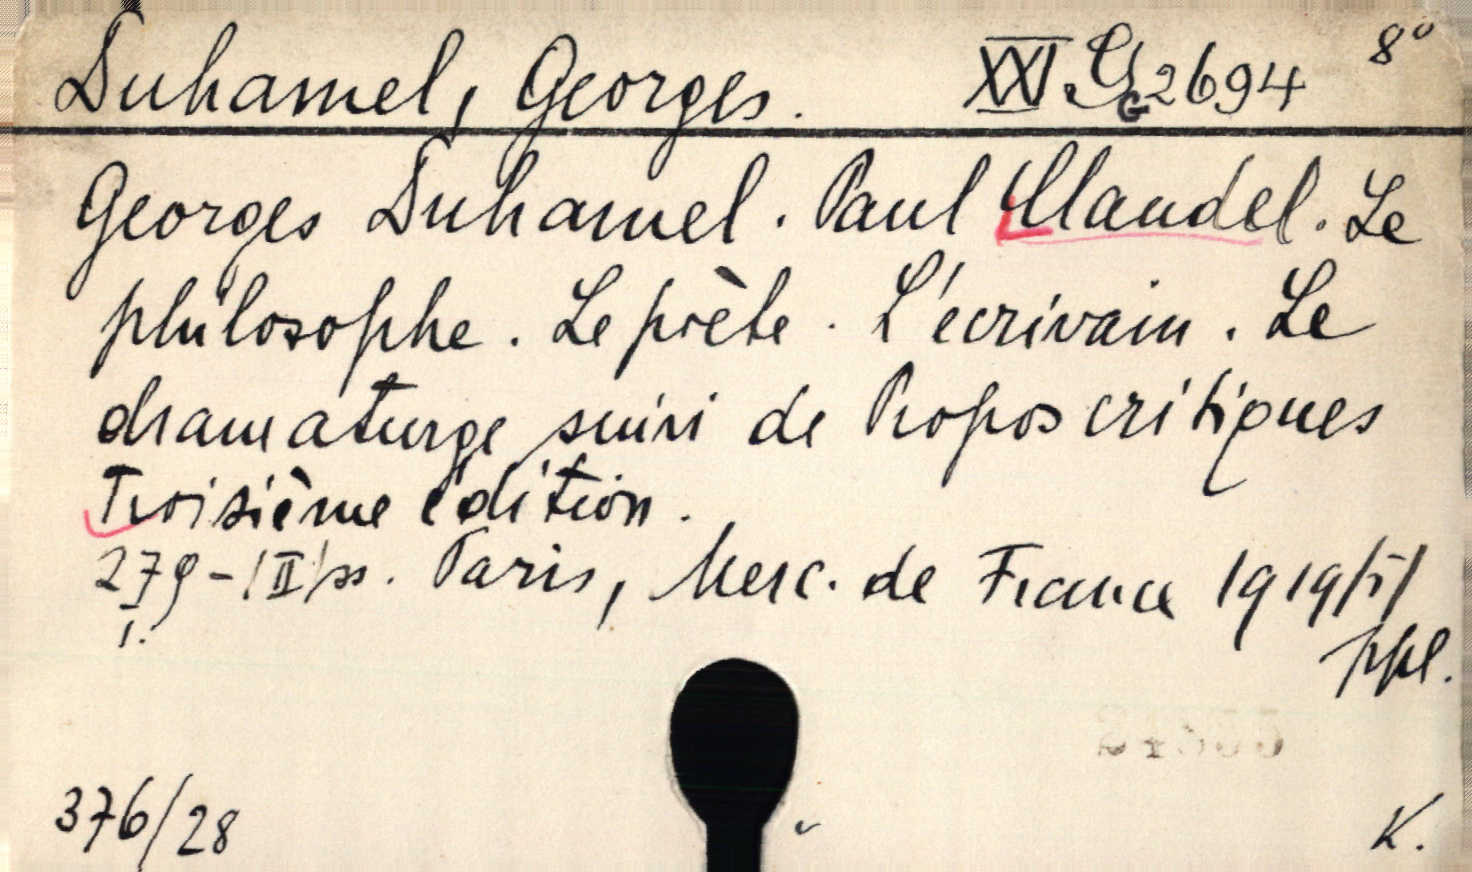 Duhamel, Georges. XXI. G 2694 8°
G
Georges Duhamel. Paul Claudel. Le
philosophe. Le poète. L'écrivain. Le
dramaturge suivi de Propos critiques
Troisième édition.
279-/II/ss. Paris, Merc. de France 1919/5/
1. ppl.
376/28 K.